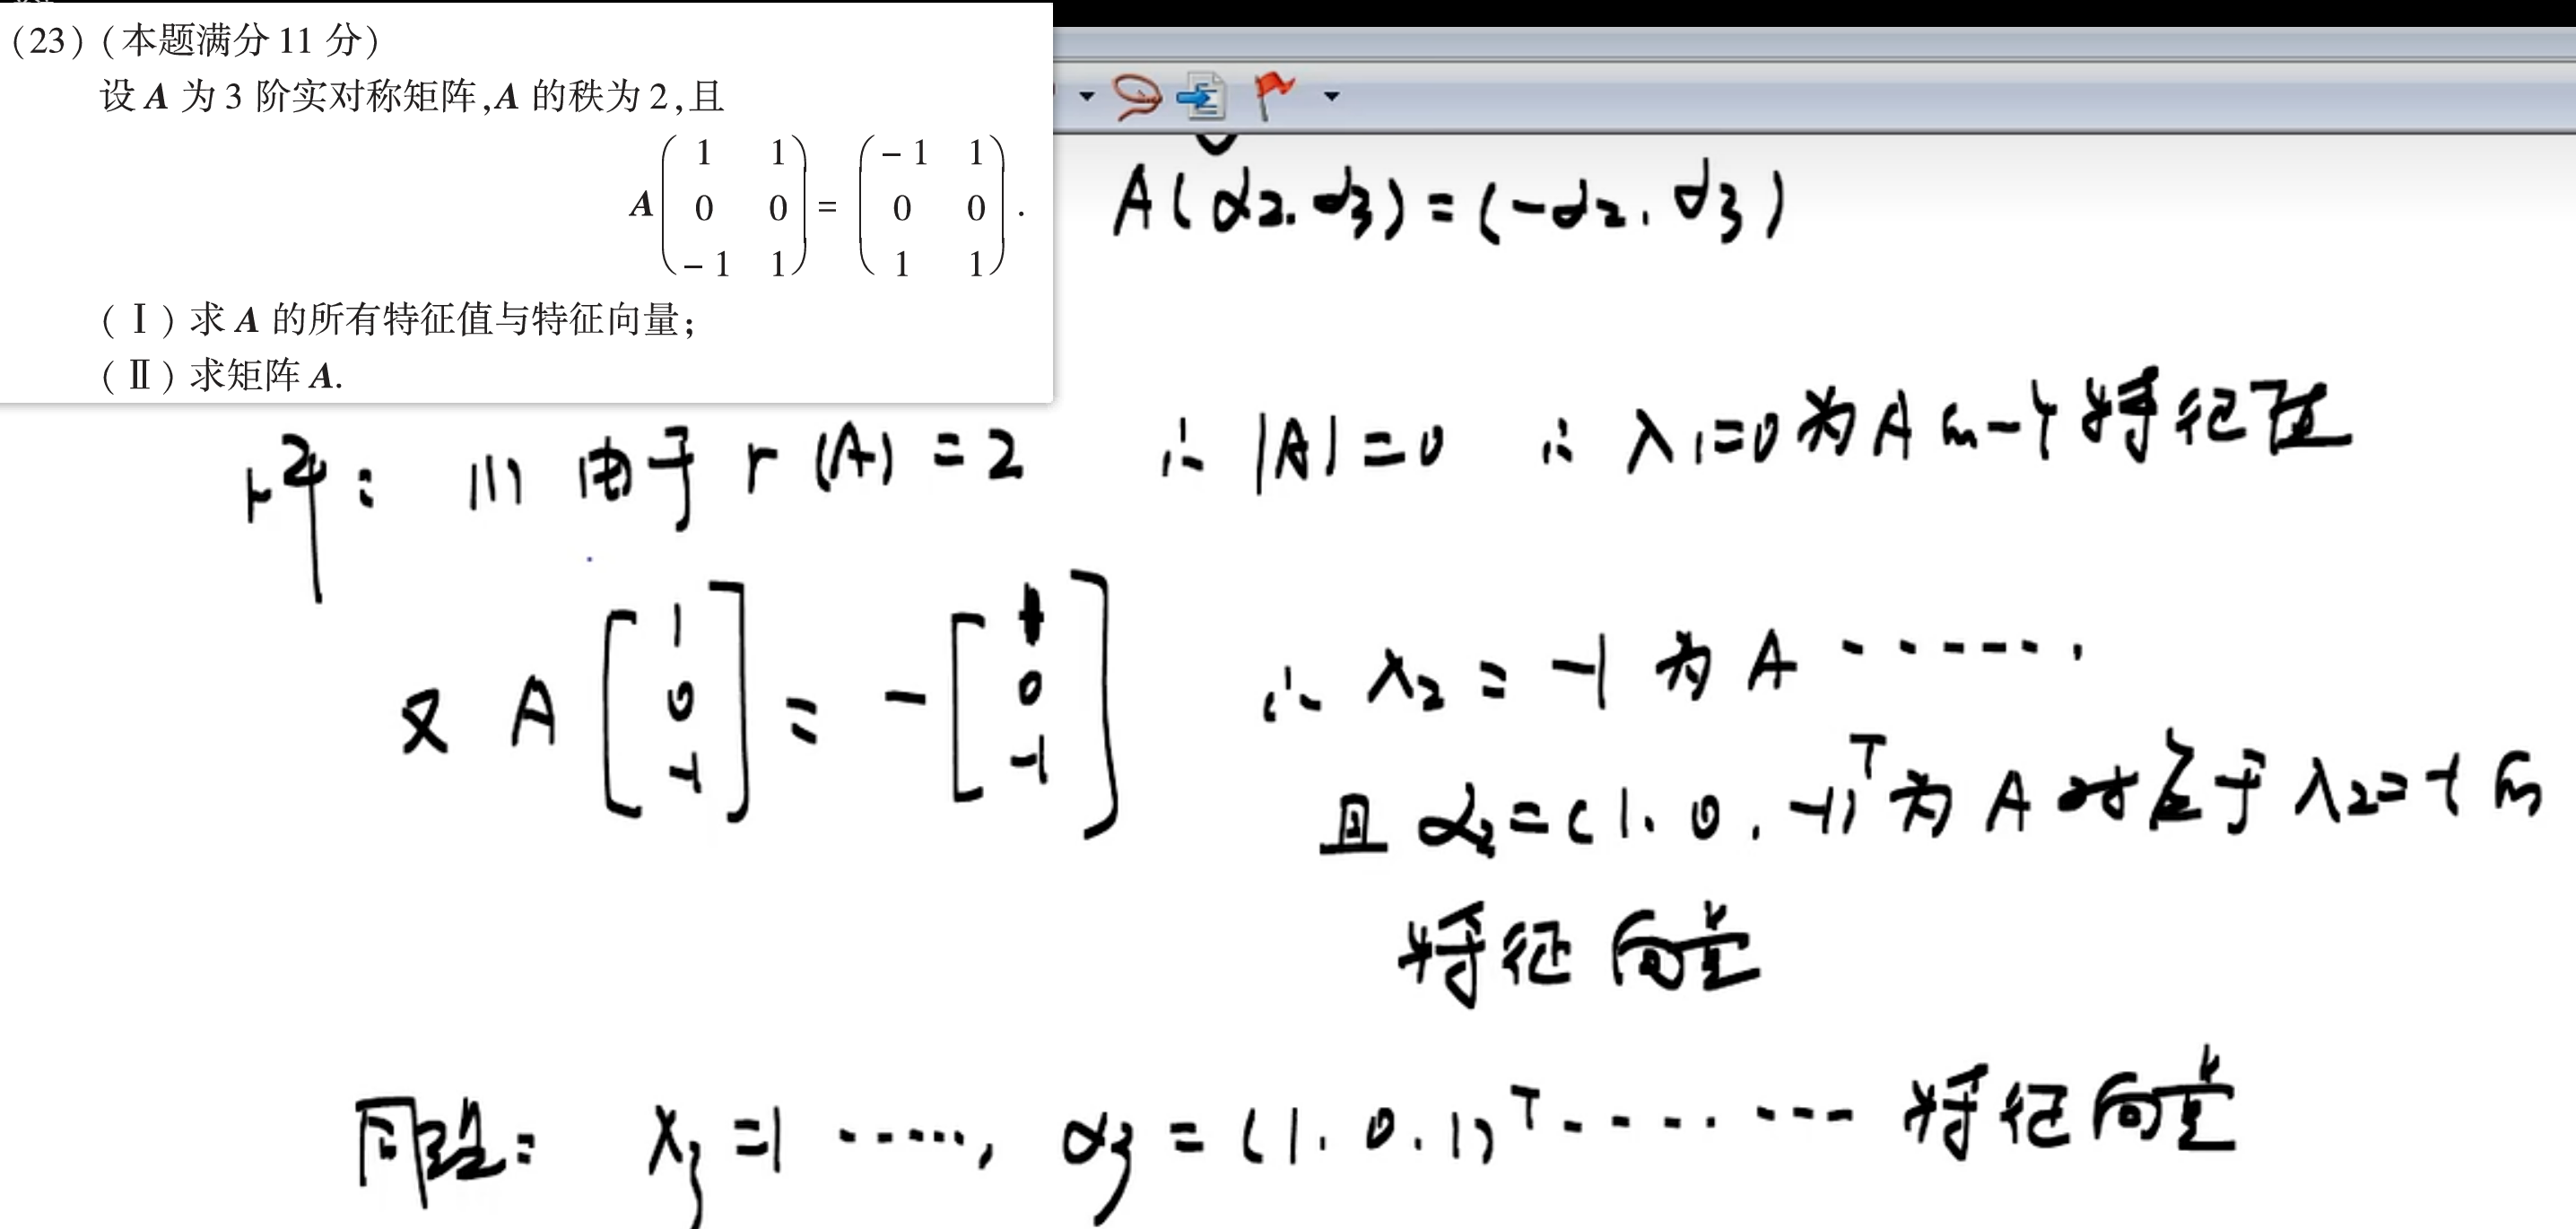 (23) (本题满分 11 分)
设 A 为 3 阶实对称矩阵,A 的秩为 2,且
A ( 1 1 ; 0 0 ; -1 1 ) = ( -1 1 ; 0 0 ; 1 1 ) .
(Ⅰ) 求 A 的所有特征值与特征向量;
(Ⅱ) 求矩阵 A.
A(α2. α3) = (-α2, α3)
解: (1) 由于 r(A) = 2 ∴ |A| = 0 ∴ λ1=0 为 A 的一个特征值
又 A [ 1 ; 0 ; -1 ] = - [ 1 ; 0 ; -1 ] ∴ λ2 = -1 为 A ······.
且 α2 = (1. 0. -1)^T 为 A 对应于 λ2=-1 的
特征向量
同理: λ3 = 1 ·····, α3 = (1. 0. 1)^T ········ 特征向量